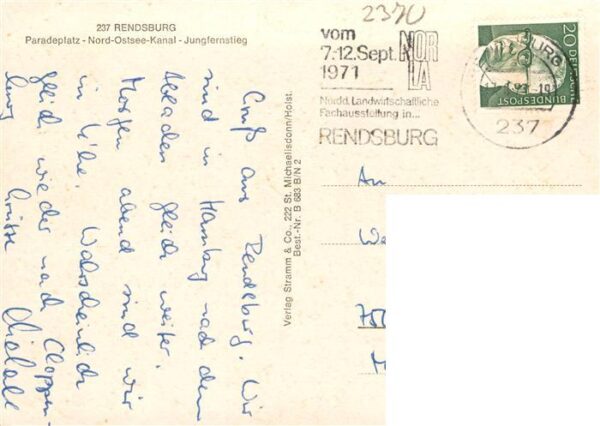 237 RENDSBURG
Paradeplatz - Nord-Ostsee-Kanal - Jungfernstieg
2370
vom
7.-12. Sept.
1971
NOR
LA
Nordd. Landwirtschaftliche
Fachausstellung in...
RENDSBURG
20
DEUTSCHE
BUNDESPOST
237
Gruß aus Rendsburg. Wir
sind in Hamburg nach dem
Abladen gleich weiter.
Morgen abend sind wir
in Wahrscheinlich
gleich wieder nach Cloppen-
burg Grüße
Verlag Stramm & Co., 222 St. Michaelisdonn/Holst.
Best.-Nr. B 683 B/N 2
An